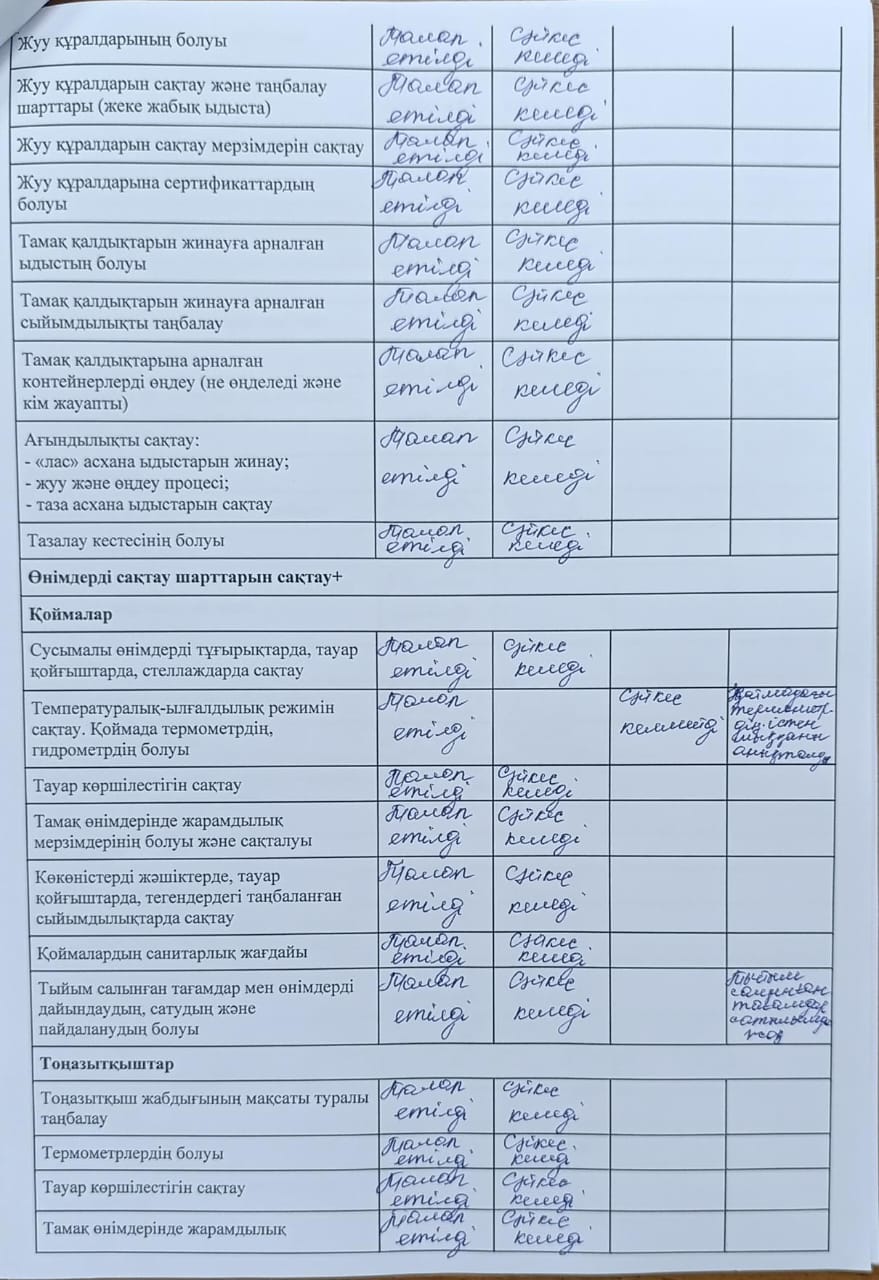 Жуу құралдарының болуы Талап етілді Сәйкес келеді
Жуу құралдарын сақтау және таңбалау Талап Сәйкес
шарттары (жеке жабық ыдыста) етілді келеді
Жуу құралдарын сақтау мерзімдерін сақтау Талап етілді Сәйкес келеді
Жуу құралдарына сертификаттардың Талап Сәйкес
болуы етілді келеді
Тамақ қалдықтарын жинауға арналған Талап Сәйкес
ыдыстың болуы етілді келеді
Тамақ қалдықтарын жинауға арналған Талап Сәйкес
сыйымдылықты таңбалау етілді келеді
Тамақ қалдықтарына арналған Талап Сәйкес
контейнерлерді өңдеу (не өңделеді және етілді келеді
кім жауапты)
Ағындылықты сақтау: Талап Сәйкес
- «лас» асхана ыдыстарын жинау;
- жуу және өңдеу процесі; етілді келеді
- таза асхана ыдыстарын сақтау
Тазалау кестесінің болуы Талап етілді Сәйкес келеді
Өнімдерді сақтау шарттарын сақтау+
Қоймалар
Сусымалы өнімдерді тұғырықтарда, тауар Талап Сәйкес
қойғыштарда, стеллаждарда сақтау етілді келеді
Температуралық-ылғалдылық режимін Талап Сәйкес Қоймадағы
сақтау. Қоймада термометрдің, етілді келмейді термометр-
гидрометрдің болуы дің істен
шыққаны
анықталды
Тауар көршілестігін сақтау Талап етілді Сәйкес келеді
Тамақ өнімдерінде жарамдылық Талап Сәйкес
мерзімдерінің болуы және сақталуы етілді келеді
Көкөністерді жәшіктерде, тауар Талап Сәйкес
қойғыштарда, тегендердегі таңбаланған етілді келеді
сыйымдылықтарда сақтау
Қоймалардың санитарлық жағдайы Талап етілді Сәйкес келеді
Тыйым салынған тағамдар мен өнімдерді Талап Сәйкес Тыйым
дайындаудың, сатудың және етілді келеді салынған
пайдаланудың болуы тағамдар
Тоңазытқыштар
Тоңазытқыш жабдығының мақсаты туралы Талап Сәйкес
таңбалау етілді келеді
Термометрлердің болуы Талап етілді Сәйкес келеді
Тауар көршілестігін сақтау Талап етілді Сәйкес келеді
Тамақ өнімдерінде жарамдылық Талап етілді Сәйкес келеді